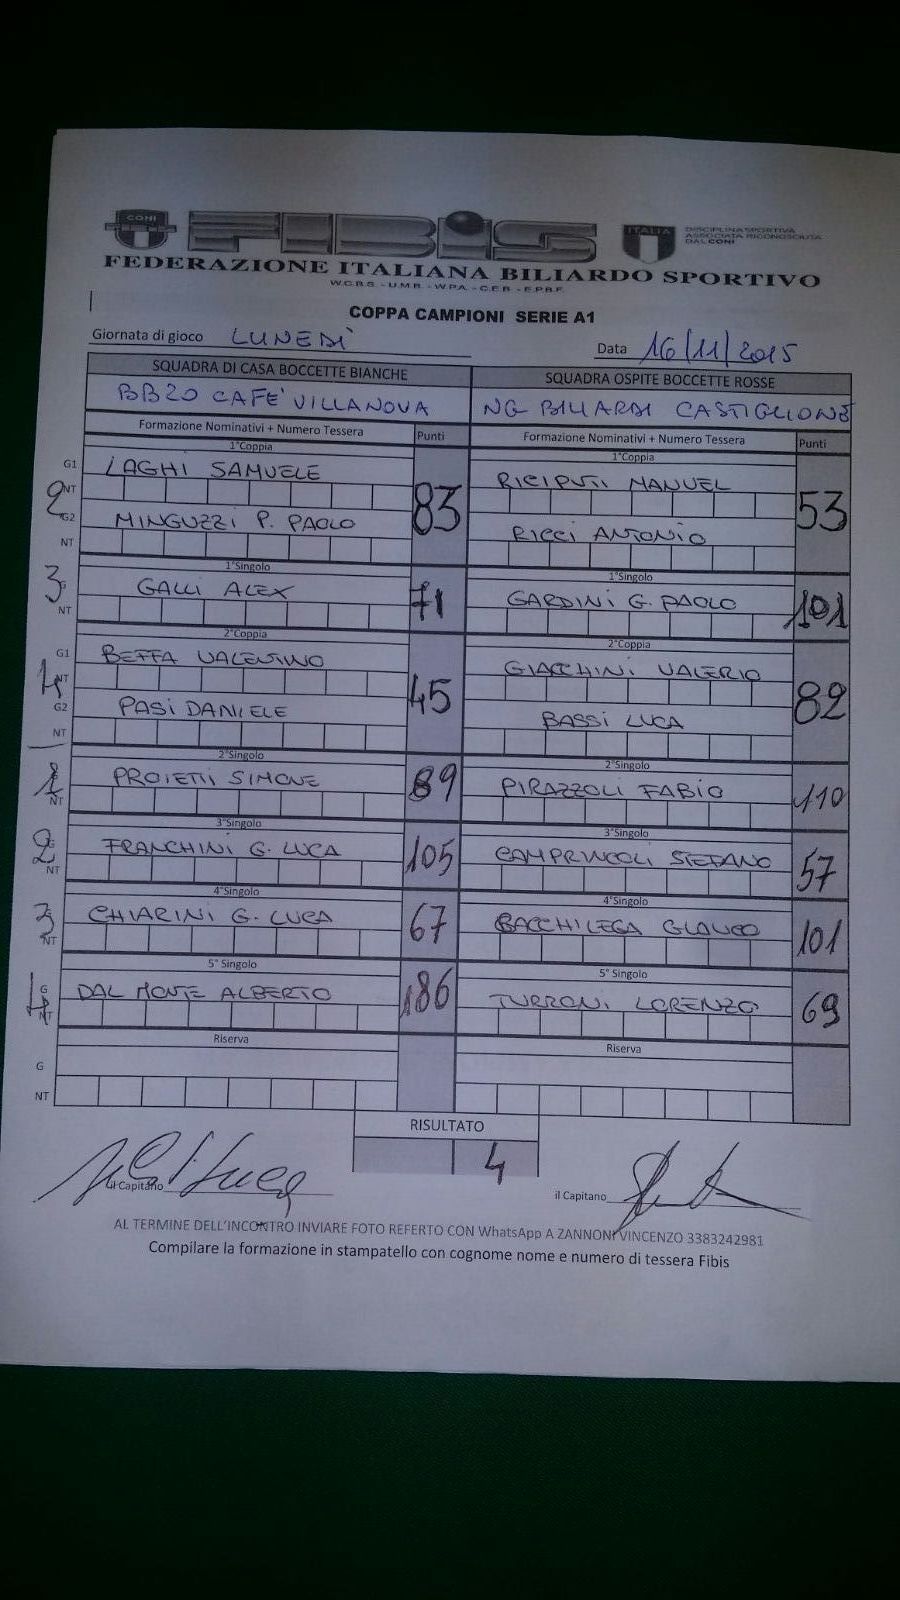 CONI FIBiS ITALIA DISCIPLINA SPORTIVA
ASSOCIATA RICONOSCIUTA
DAL CONI
FEDERAZIONE ITALIANA BILIARDO SPORTIVO
W.C.B.S - U.M.B. - W.P.A - C.E.B. - E.P.B.F.
COPPA CAMPIONI SERIE A1
Giornata di gioco LUNEDÌ Data 16/11/2015
SQUADRA DI CASA BOCCETTE BIANCHE SQUADRA OSPITE BOCCETTE ROSSE
BB20 CAFE' VILLANOVA NG BILIARDI CASTIGLIONE
Formazione Nominativi + Numero Tessera Punti Formazione Nominativi + Numero Tessera Punti
1°Coppia 1°Coppia
G1 LAGHI SAMUELE 83 RICIPUTI MANUEL 53
2 NT
G2 MINGUZZI P. PAOLO RICCI ANTONIO
NT
1°Singolo 1°Singolo
3 G GALLI ALEX 71 GARDINI G. PAOLO 101
NT
2°Coppia 2°Coppia
G1 BEFFA VALENTINO 45 GIACCHINI VALERIO 82
1 NT
G2 PASI DANIELE BASSI LUCA
NT
2°Singolo 2°Singolo
1 PROIETTI SIMONE 89 PIRAZZOLI FABIO 110
NT
3°Singolo 3°Singolo
2 FRANCHINI G. LUCA 105 CAMPRINCOLI STEFANO 57
NT
4°Singolo 4°Singolo
3 CHIARINI G. LUCA 67 BACCHILEGA GLAUCO 101
NT
5° Singolo 5° Singolo
G DAL MONTE ALBERTO 186 TURRONI LORENZO 69
1 NT
Riserva Riserva
G
NT
RISULTATO
4
il Capitano il Capitano
AL TERMINE DELL'INCONTRO INVIARE FOTO REFERTO CON WhatsApp A ZANNONI VINCENZO 3383242981
Compilare la formazione in stampatello con cognome nome e numero di tessera Fibis